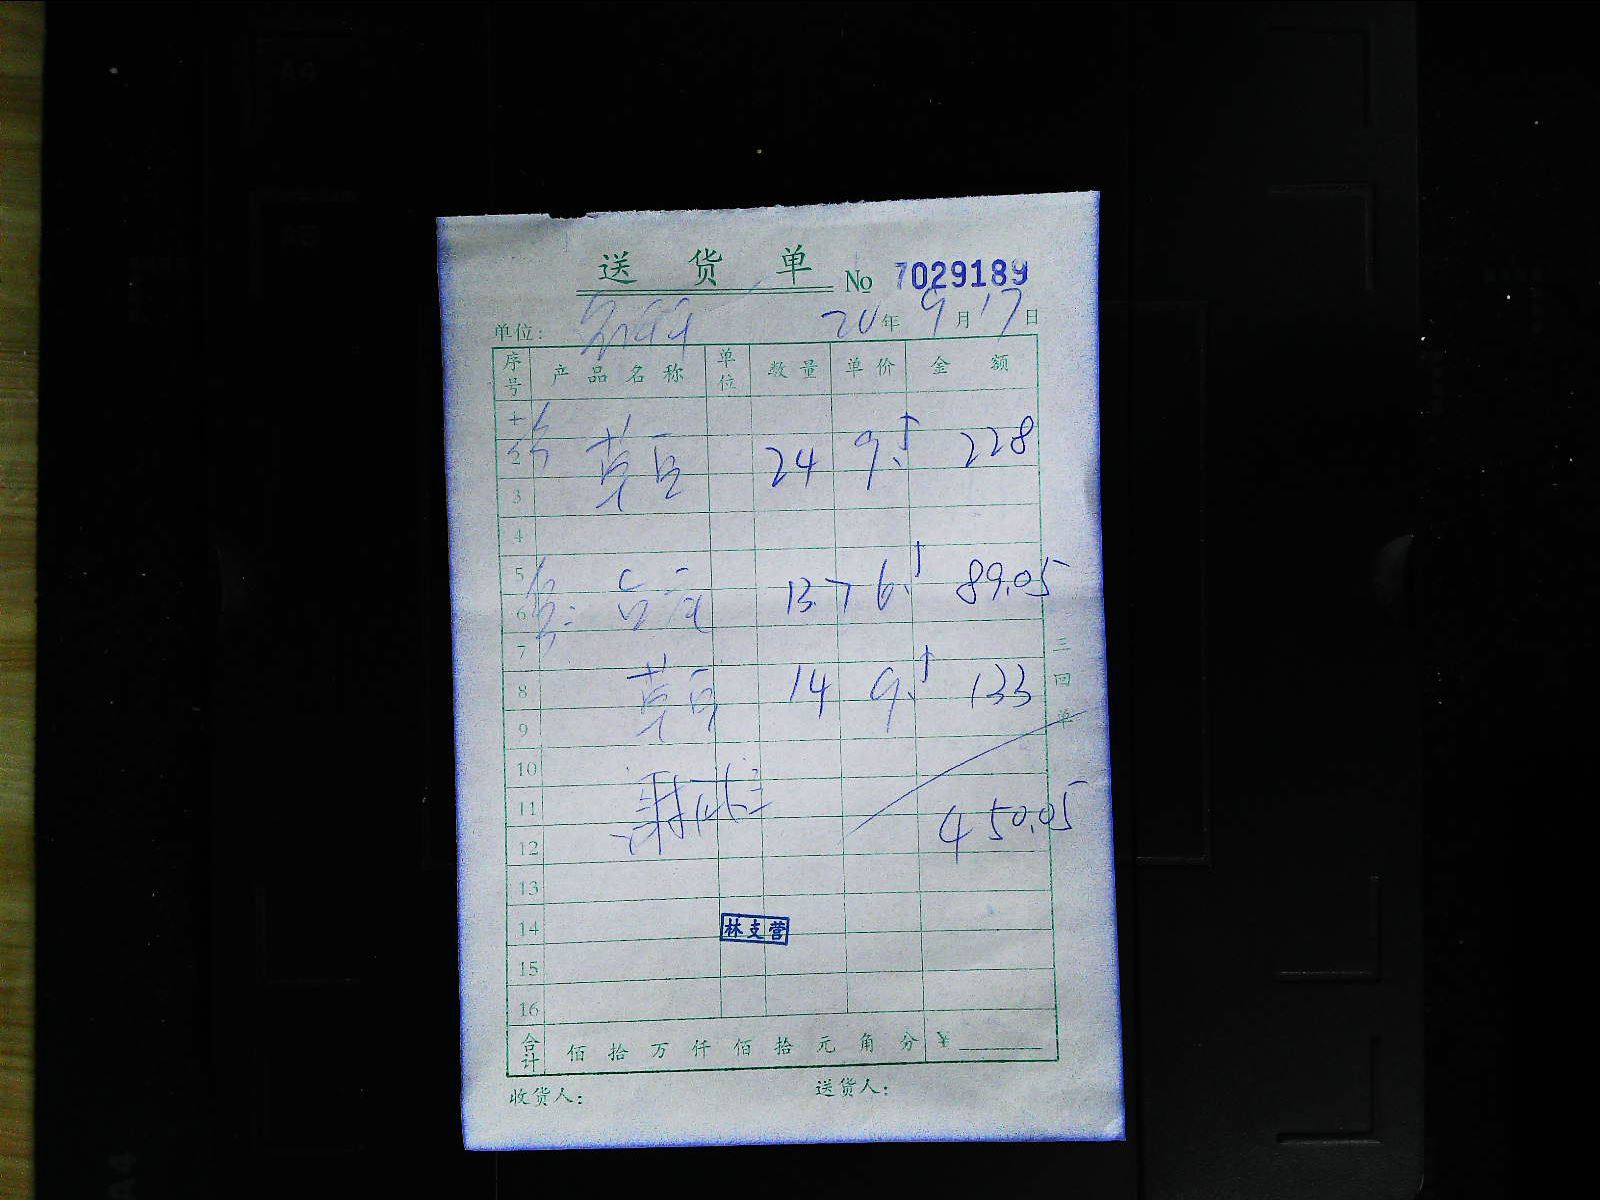 送货单 No 7029189
单位: 20年9月17日
序号 产品名称 单位 数量 单价 金额
1
2 草豆 24 9.5 228
3
4
5
6 13.7 6.5 89.05
7
8 草豆 14 9.5 133
9
10
11
12 450.05
13
14 林支营
15
16
合计 佰 拾 万 仟 佰 拾 元 角 分 ¥
收货人: 送货人:
三回单